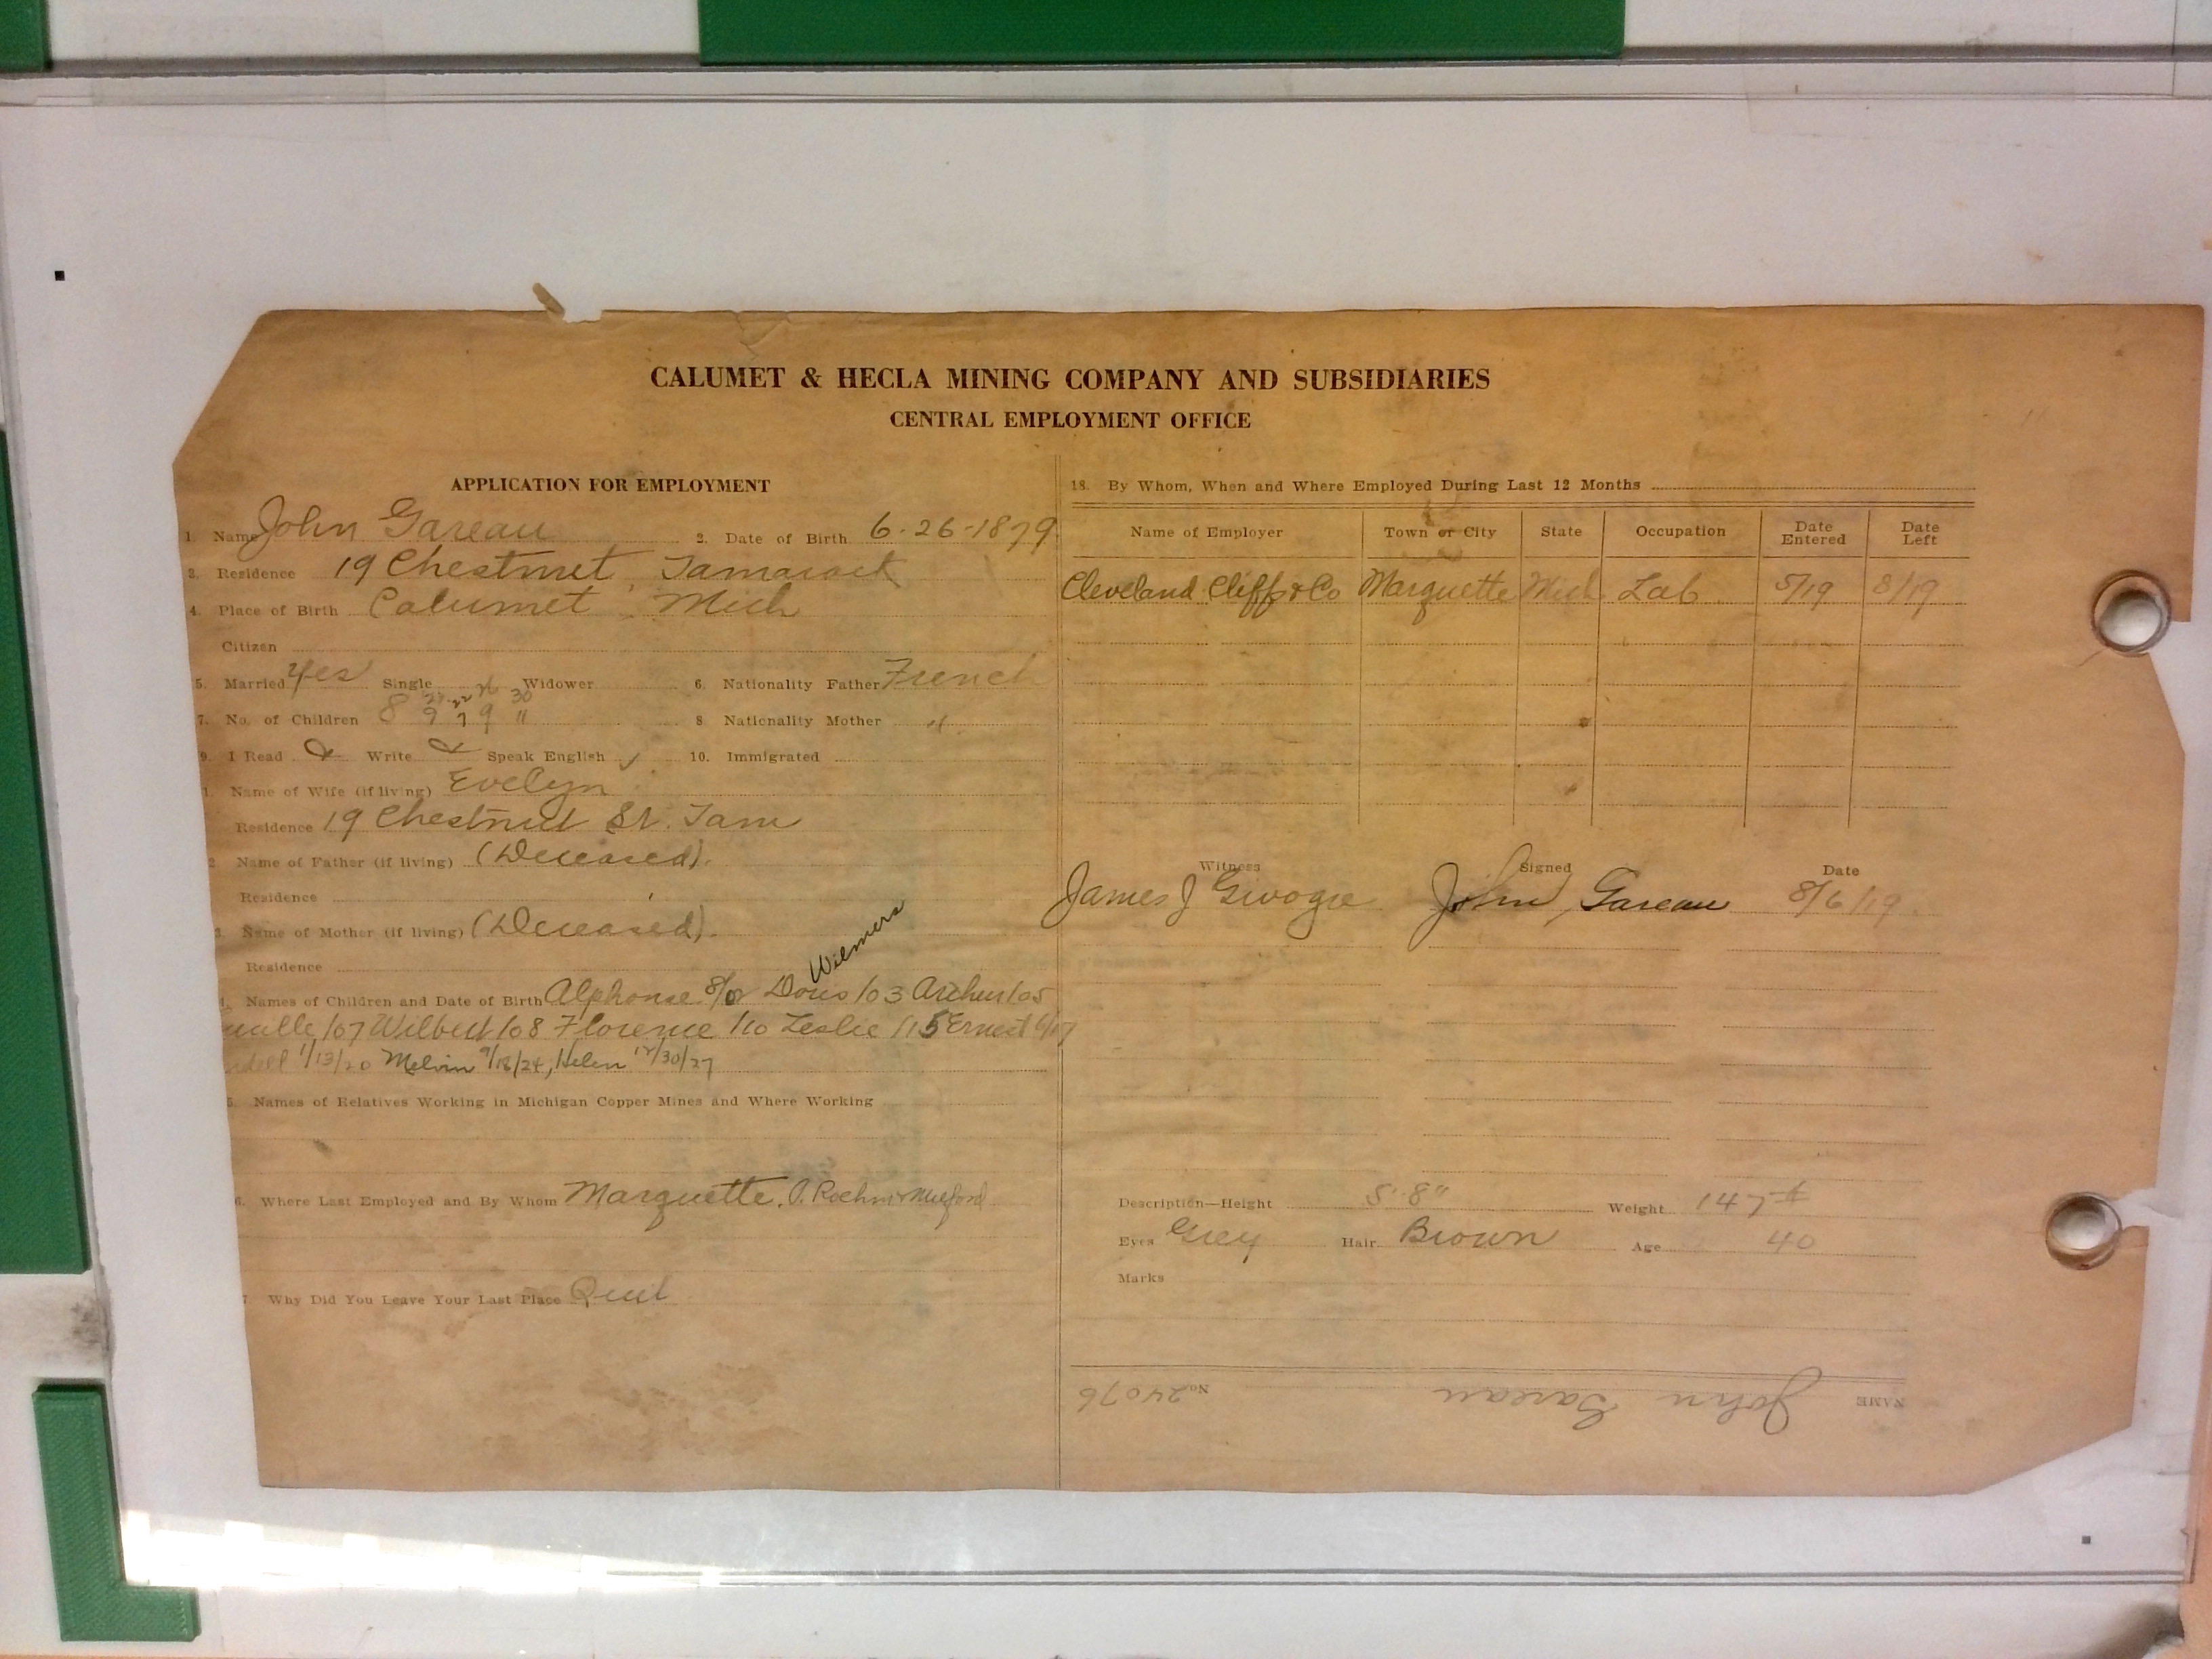 CALUMET & HECLA MINING COMPANY AND SUBSIDIARIES
CENTRAL EMPLOYMENT OFFICE
APPLICATION FOR EMPLOYMENT
1. Name John Gareau 2. Date of Birth 6-26-1879
3. Residence 19 Chestnut, Tamarack
4. Place of Birth Calumet, Mich
Citizen
5. Married Yes Single Widower 6. Nationality Father French
7. No. of Children 8 9 7 9 11 30 8 Nationality Mother "
9. I Read Write Speak English ✓ 10. Immigrated
1. Name of Wife (if living) Evelyn
Residence 19 Chestnut St. Tam
2. Name of Father (if living) (Deceased).
Residence
3. Name of Mother (if living) (Deceased).
Residence
Wilmers
4. Names of Children and Date of Birth Alphonse 8/02 Doris /03 Archer /05
/07 Wilbert /08 Florence /10 Leslie /15 Ernest /17
1/13/20 Melvin 9/18/24, Helen 12/30/27
5. Names of Relatives Working in Michigan Copper Mines and Where Working
6. Where Last Employed and By Whom Marquette.
7. Why Did You Leave Your Last Place Quit
18. By Whom, When and Where Employed During Last 12 Months
Name of Employer Town or City State Occupation Date Entered Date Left
Cleveland Cliffs & Co Marquette Mich Lab 5/19 8/19
Witness Signed Date
James J John Gareau 8/6/19.
Description—Height 5'-8" Weight 147#
Eyes Grey Hair Brown Age 40
Marks
NAME John Gareau No. 24076